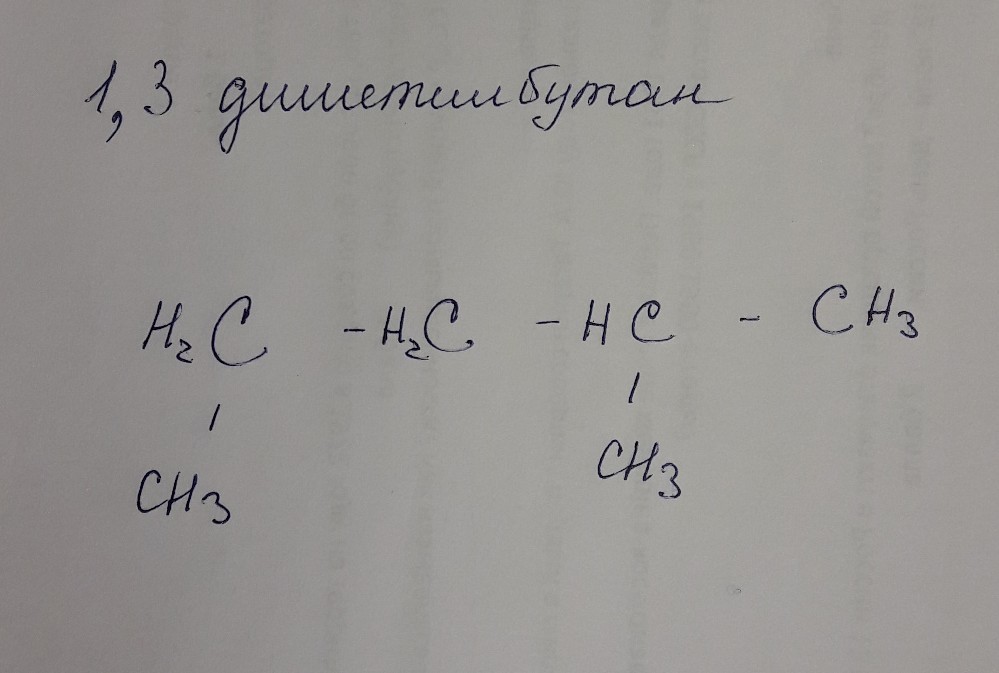 1,3 диметилбутан
H₂C - H₂C - HC - CH₃
CH₃ CH₃